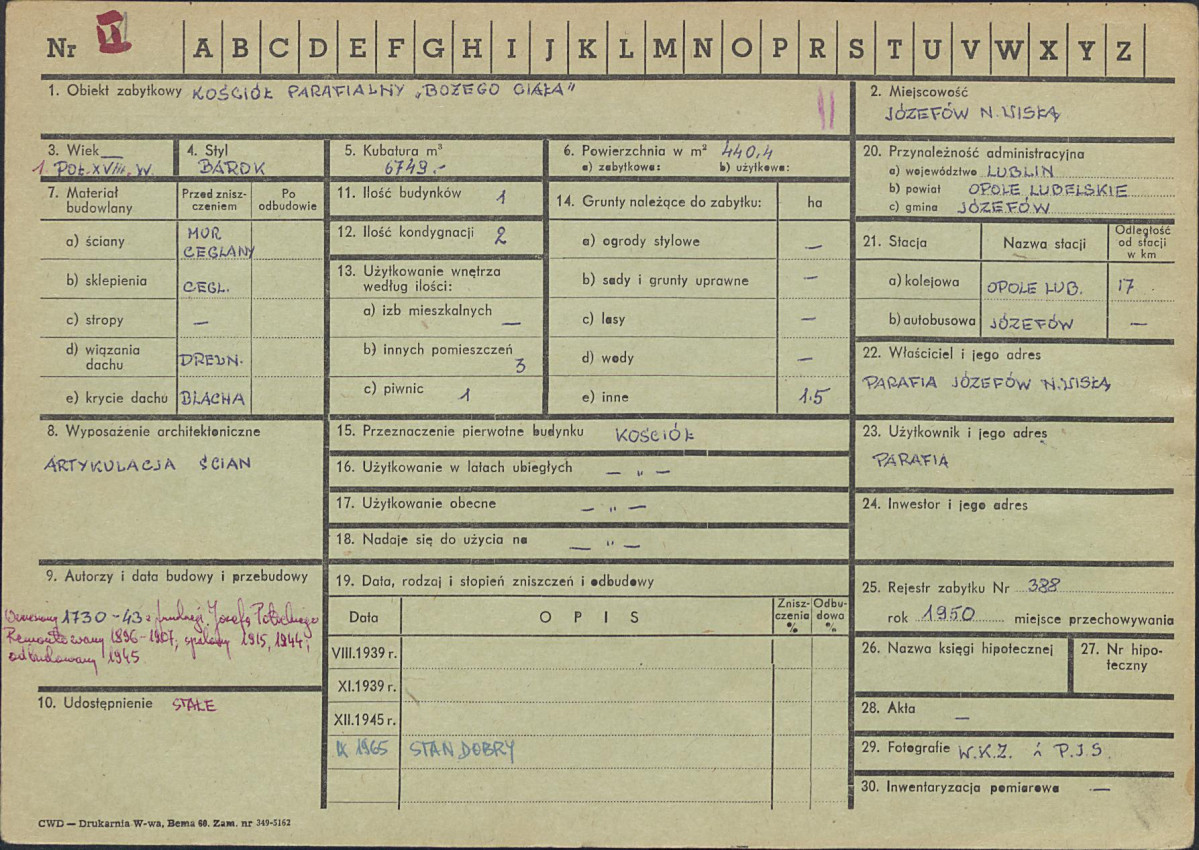 Nr II A B C D E F G H I J K L M N O P R S T U V W X Y Z
1. Obiekt zabytkowy KOŚCIÓŁ PARAFIALNY „BOŻEGO CIAŁA"
II
2. Miejscowość
JÓZEFÓW N. WISŁĄ
3. Wiek
1. POŁ. XVIII. W.
4. Styl
BAROK
5. Kubatura m³
6749.-
6. Powierzchnia w m² 440,4
a) zabytkowa: b) użytkowa:
7. Materiał budowlany
Przed zniszczeniem
Po odbudowie
a) ściany MUR CEGLANY
b) sklepienia CEGL.
c) stropy —
d) wiązania dachu DREWN.
e) krycie dachu BLACHA
8. Wyposażenie architektoniczne
ARTYKULACJA ŚCIAN
9. Autorzy i data budowy i przebudowy
Wzniesiony 1730-43 z fundacji Józefa Potockiego
Remontowany 1896-1907, spalony 1915, 1944,
odbudowany 1945
10. Udostępnienie STAŁE
11. Ilość budynków 1
12. Ilość kondygnacji 2
13. Użytkowanie wnętrza
według ilości:
a) izb mieszkalnych —
b) innych pomieszczeń 3
c) piwnic 1
14. Grunty należące do zabytku: ha
a) ogrody stylowe —
b) sady i grunty uprawne —
c) lasy —
d) wody —
e) inne 1.5
15. Przeznaczenie pierwotne budynku KOŚCIÓŁ
16. Użytkowanie w latach ubiegłych — " —
17. Użytkowanie obecne — " —
18. Nadaje się do użycia na — " —
19. Data, rodzaj i stopień zniszczeń i odbudowy
Data OPIS Zniszczenia % Odbudowa %
VIII.1939 r.
XI.1939 r.
XII.1945 r.
IX 1965 STAN DOBRY
20. Przynależność administracyjna
a) województwo LUBLIN
b) powiat OPOLE LUBELSKIE
c) gmina JÓZEFÓW
21. Stacja Nazwa stacji Odległość od stacji w km
a) kolejowa OPOLE LUB. 17
b) autobusowa JÓZEFÓW —
22. Właściciel i jego adres
PARAFIA JÓZEFÓW N. WISŁĄ
23. Użytkownik i jego adres
PARAFIA
24. Inwestor i jego adres
25. Rejestr zabytku Nr 388
rok 1950 miejsce przechowywania
26. Nazwa księgi hipotecznej
27. Nr hipoteczny
28. Akta —
29. Fotografie W.K.Z. i P.I.S.
30. Inwentaryzacja pomiarowa —
CWD — Drukarnia W-wa, Bema 60. Zam. nr 349-5162